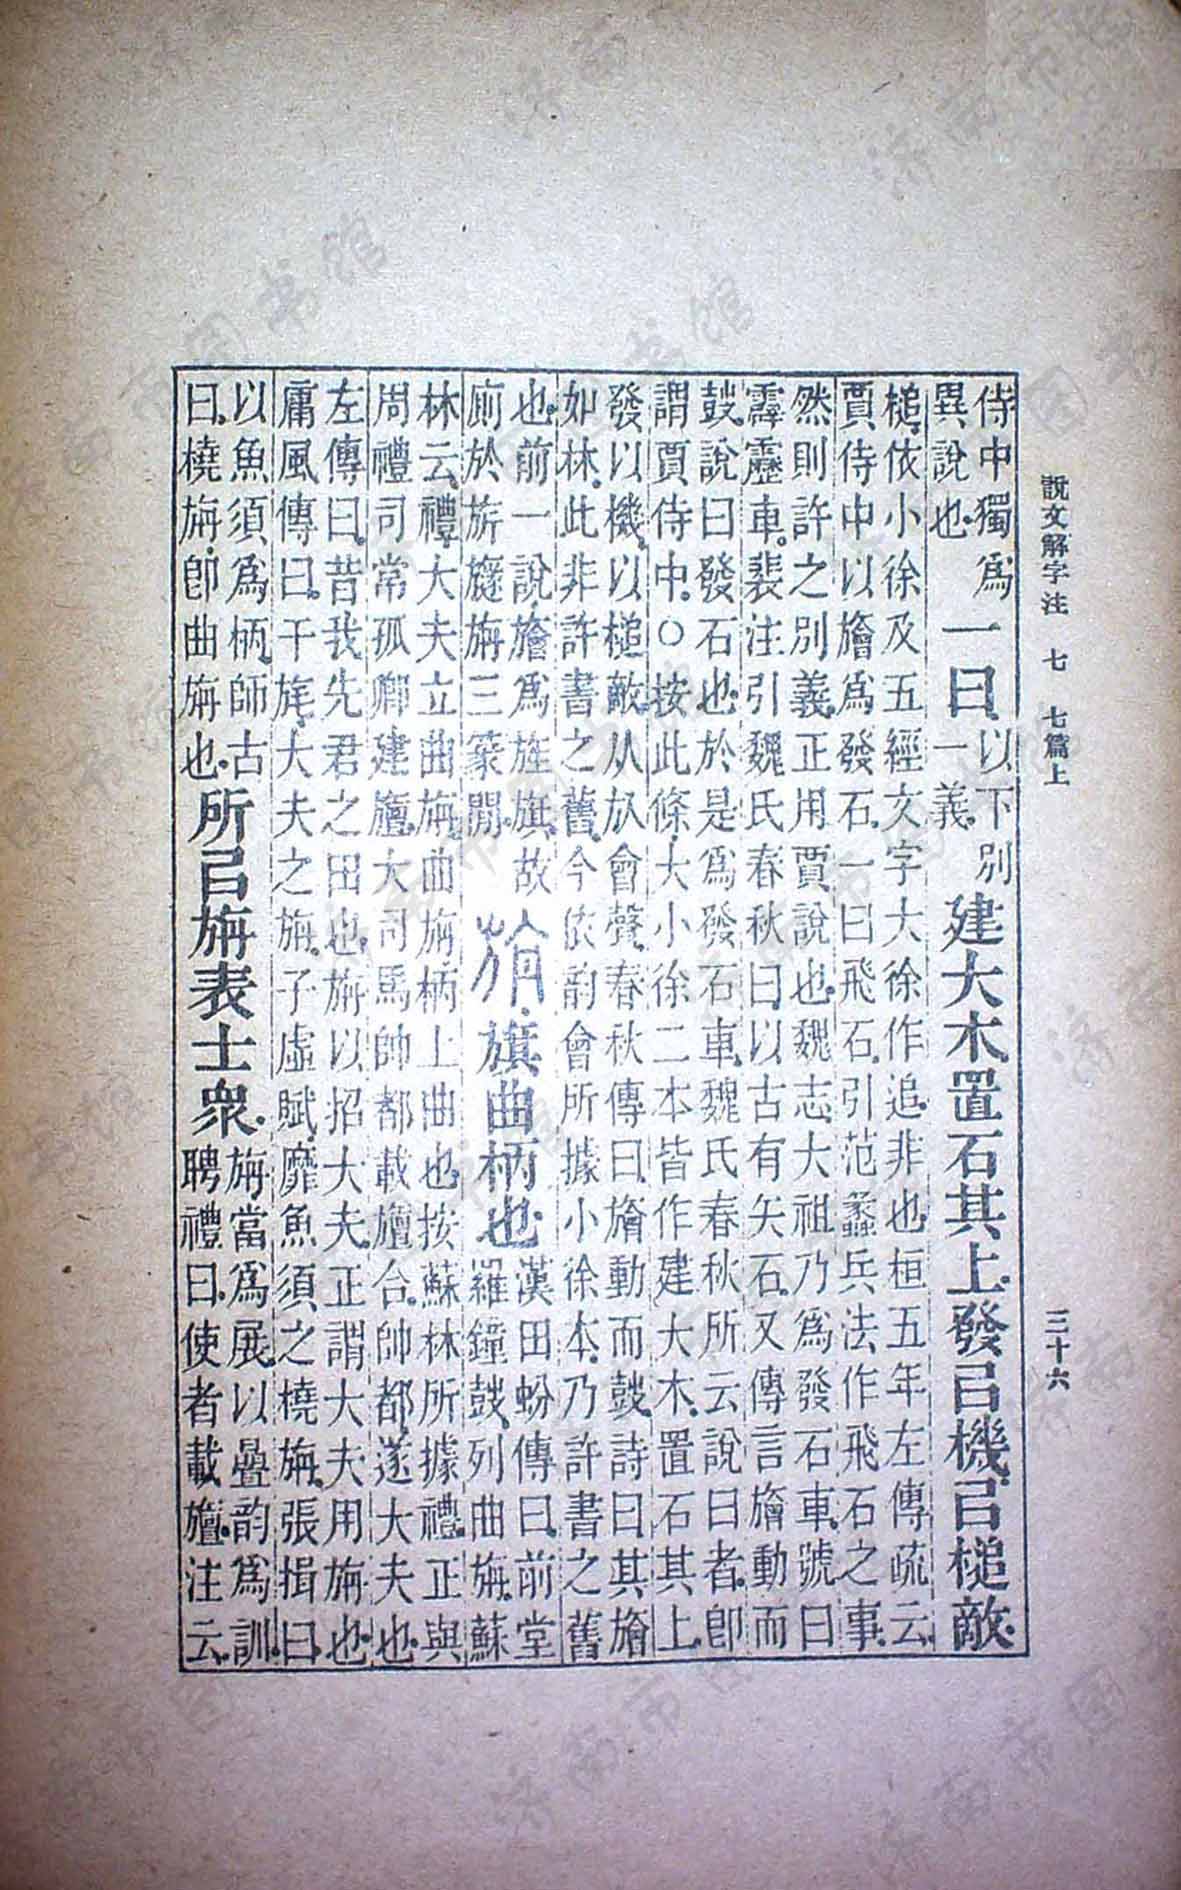 說文解字注 七 七篇上 三十六
侍中獨爲異說也一曰以下別一義建大木置石其上發㠯機㠯槌敵
槌依小徐及五經文字大徐作追非也桓五年左傳疏云
賈侍中以旝爲發石一曰飛石引范蠡兵法作飛石之事
然則許之別義正用賈說也魏志大祖乃爲發石車號曰
霹靂車裴注引魏氏春秋曰以古有矢石又傳言旝動而
鼓說曰發石也於是爲發石車魏氏春秋所云說曰者卽
謂賈侍中○按此條大小徐二本皆作建大木置石其上
發以機以槌敵从㫃會聲春秋傳曰旝動而鼓詩曰其旝
如林此非許書之舊今依韵會所據小徐本乃許書之舊
也前一說旝爲旌旗故廁於旂旞旃三篆閒旃旗曲柄也漢田蚡傳曰前堂羅鐘鼓列曲旃蘇
林云禮大夫立曲旃曲旃柄上曲也按蘇林所據禮正與
周禮司常孤卿建旜大司馬帥都載旜合帥都遂大夫也
左傳曰昔我先君之田也旃以招大夫正謂大夫用旃也
庸風傳曰干旄大夫之旃子虛賦靡魚須之橈旃張揖曰
以魚須爲柄師古曰橈旃卽曲旃也所㠯旃表士衆旃當爲展以疊韵爲訓聘禮曰使者載旜注云